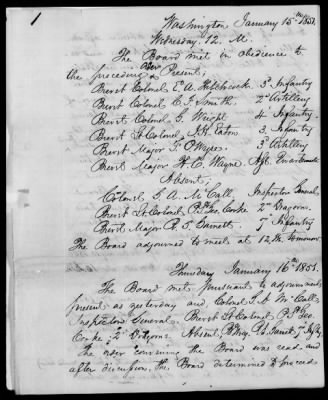 1
Washington January 15th 1851
Wednesday, 12. M.
The Board met in obedience to
the preceding Order
Present;
Brevet Colonel E. A. Hitchcock, 3d Infantry
Brevet Colonel C. F. Smith. 2d Artillery
Brevet Colonel G. Wright 4. Infantry
Brevet Lt. Colonel J. H. Eaton 3. Infantry
Brevet Major T. O'Wyer 3d Artillery
Brevet Major H. C. Wayne, Ast.
Absent;
Colonel G. A. McCall, Inspector General.
Brevet Lt. Colonel P. St. Geo. Cooke 2d Dragoons.
Brevet Major R. S. Garnett 7th Infantry
The Board adjourned to meet at 12 M. tomorrow
Thursday January 16th 1851.
The Board met pursuant to adjournment
present; as yesterday and Colonel G. A. McCall,
Inspector General. Brevet Lt. Colonel P. St. Geo.
Cooke 2d Dragoons. Absent, B. Maj. R. S. Garnett 7th Infty.
The order convening the Board was read and
after discussion, the Board determined to proceed